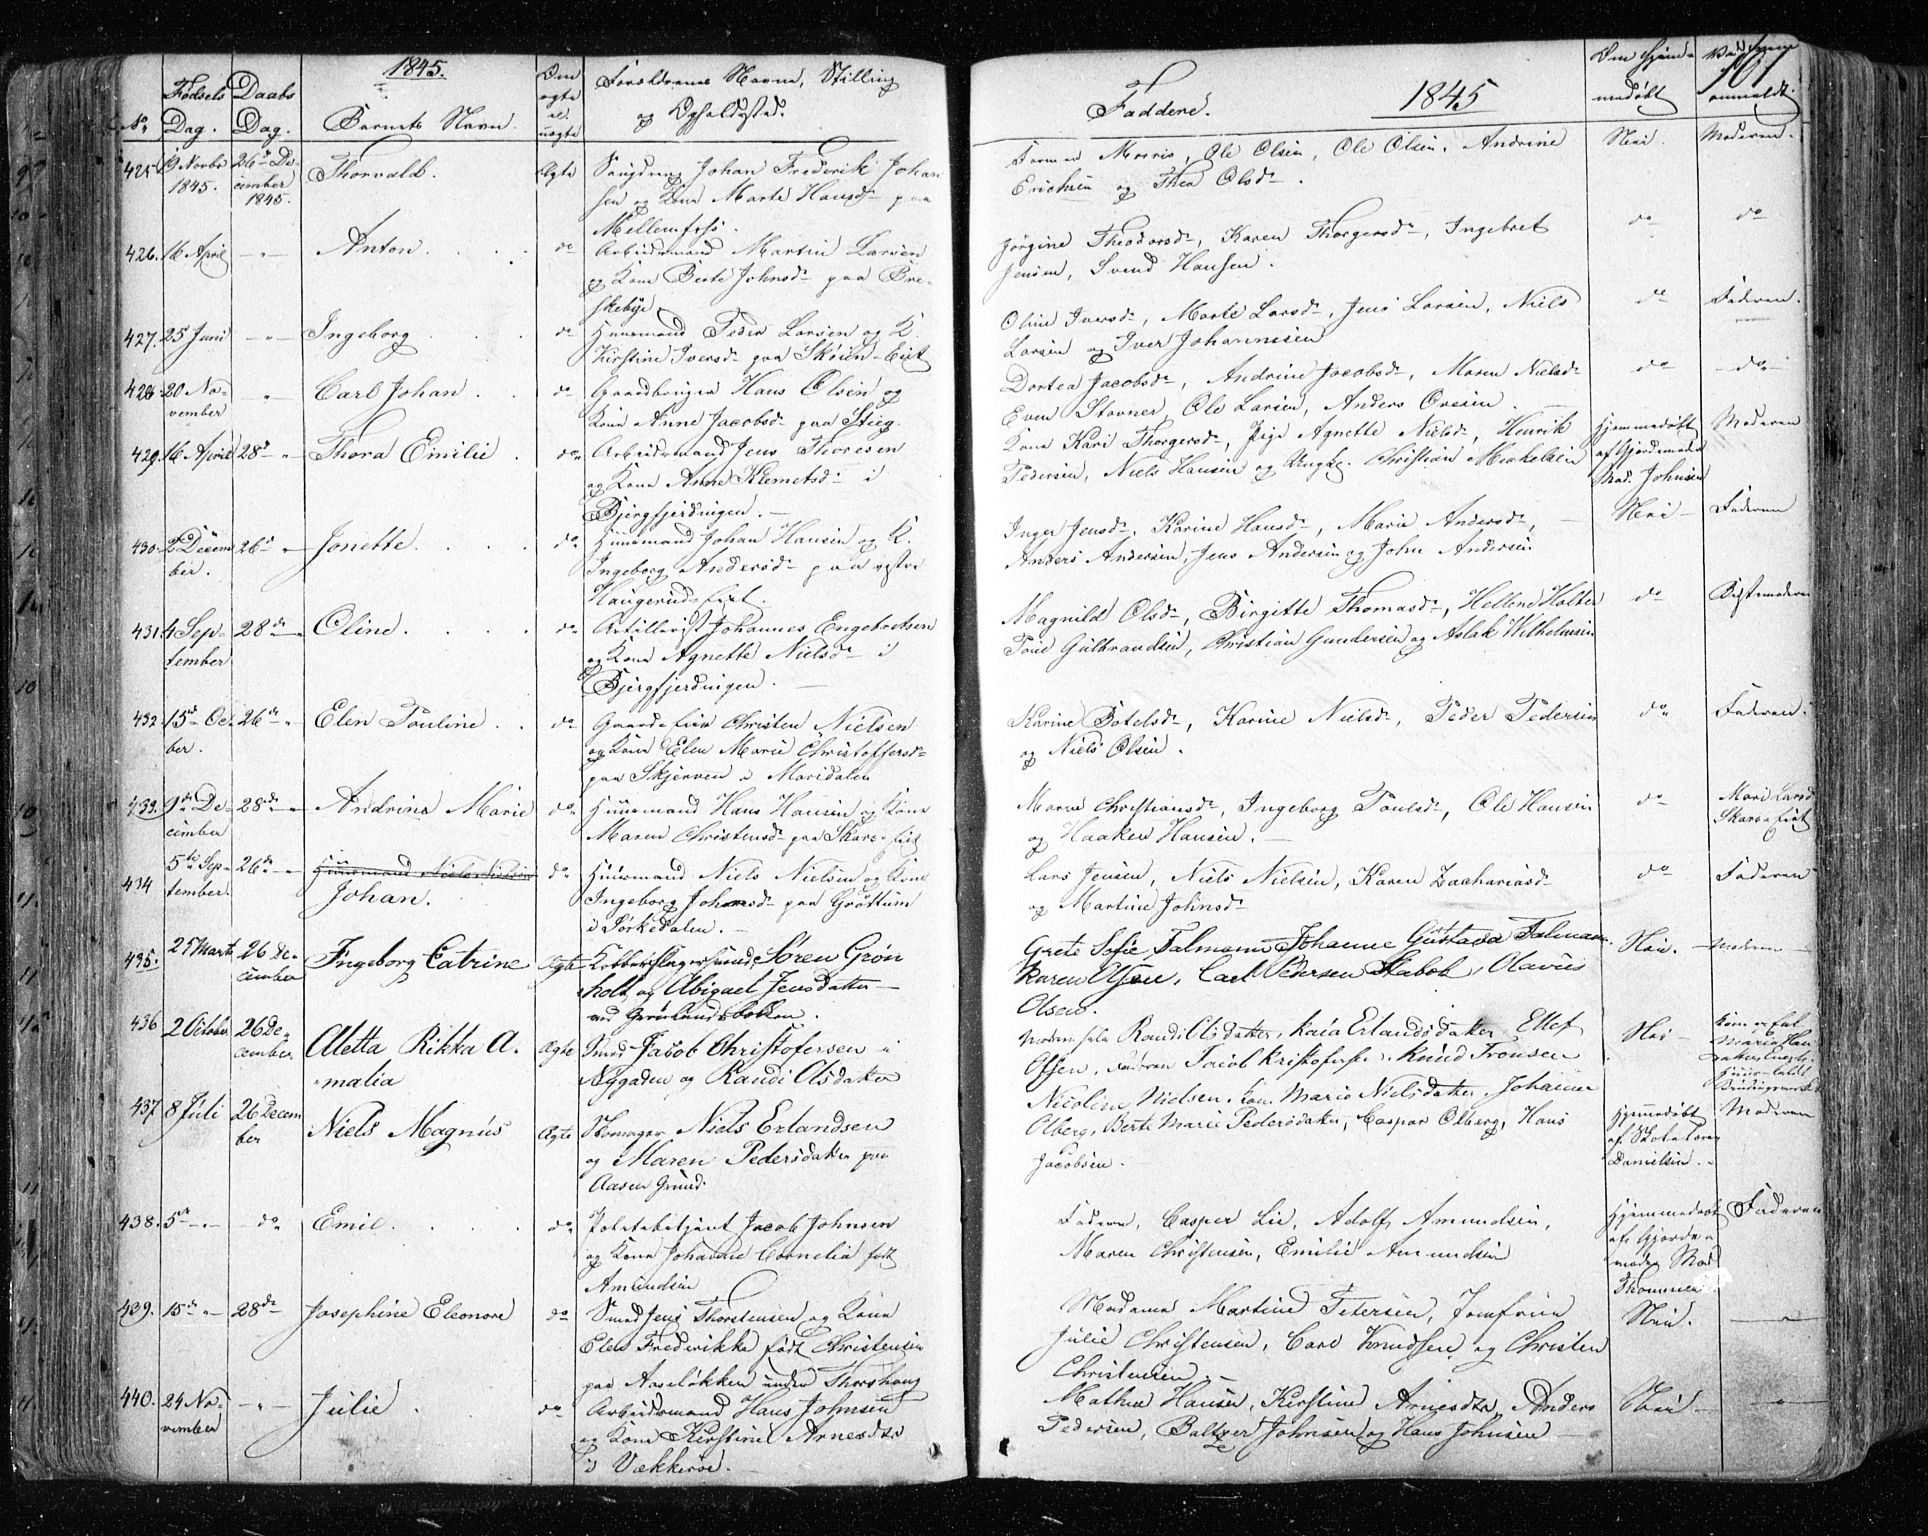 1845.
No. Fødsels Dag. Daabs Dag. Barnets Navn. Om ægte el. uægte Forældrenes Navne, Stilling
og Opholdsted.
425 19 Novbr 1845. 26de December 1845. Thorvald. Ægte
Johan Frederik Johan
sen og Kone Marte Hansdr paa
426. 16 April — " — Anton. do Arbeidsmand Martin Larsen
og Kone Berte Johnsdr paa Bre-
skebye
427. 25 Juni — " — Ingeborg do Huusmand Peder Larsen og K.
Kirstine Iversdr paa Skøien-Eiet
428. 20 November " Carl Johan. do Gaardbruger Hans Olsen og
Kone Anne Jacobsdr paa Stieg.
429. 16 April 28de " Thora Emilie do Arbeidsmand Jens Thoresen
og Kone Anne Klemetsdr i
Bjergfjerdingen.—
430. 2de December. 26de " Jonette. do Huusmand Johan Hansen og K.
Ingeborg Andersdr paa vestre
Haugerud-eiet.
431. 4 September 28de — " Oline. do Artillerist Johannes Engebretsen
og Kone Agnette Nielsdr i
Bjergfjerdingen.—
432. 15de Ocber. 26de " Elen Pauline do Christen Nielsen
og Kone Elen Marie Christoffersdr
paa Skjerven i Maridalen
433. 9de December 28de — " Andrine Marie do Huusmand Hans Hansen og Kone
Maren Christensdr paa
434 5te September. 26de — " Huusmand Niels Nielsen
Johan. do Huusmand Niels Nielsen og Kone
Ingeborg Johansdr paa Grøttum
i Sørkedalen.—
435. 25 Marts 26 December Ingeborg Catrine Ægte Kobberslagersvend Søren Grøn
holt og Abigael Jensdatter—
ved Grønlandsbakken.
436 2 October 26 December Aletta Rikka A.
malia Ægte Smed Jacob Christofersen i
Nygaden og Randi Olsdatter
437 8 Juli 26 December Niels Magnus Ægte Skomager Niels Erlandsen
og Maren Pedersdatter paa
Aasen Grund.
438. 5te — " — do Emil. do Politibetjent Jacob Johnsen
og Kone Johanne Cornelia født
Amundsen
439. 15de " — 28de Josephine Eleonore do Smed Jens Thorstensen og Kone
Elen Frederikke født Christensen
paa Aaseløkken under Thorshoug
440. 24 November — " — Julie do Arbeidsmand Hans Johnsen
og Kone Kirstine Arnesdtr
i Vækkerøe.—
Faddere. 1845 Om hjemmedøbt anmeldt. 107
Morris, Ole Olsen, Ole Olsen, Andrine
Erichsen og Thea Olsdr. Nei. Moderen.
Jørgine Theodorsdr, Karen Thorgersdr, Ingebret
Jensen, Svend Hansen. do do
Oline Iversdr, Marte Larsdr, Jens Larsen, Niels
Larsen og Iver Johannesen do Faderen.
Dortea Jacobsdr, Andrine Jacobsdr, Maren Nielsdr
Even Stovner, Ole Larsen, Anders Ovesen do do
Kone Kari Thorgersdr, Pige Agnette Nielsdr, Henrik
Pedersen, Niels Hansen og Ungk. Christian Mikkelsen Hjemmedøbt
af Gjordemoder
Mad. Johnsen Moderen
Inger Jensdr, Karine Hansdr, Marie Andersdr,
Anders Andersen, Jens Andersen og John Andersen Nei — Faderen
Magnild Olsdr, Birgitte Thomasdr, Hellene Holter
Gulbrandsen, Christian Gundersen og Aslak Wilhelmsen do Bestemoderen
Karine Botelsdr, Karine Nielsdr, Peder Pedersen
og Niels Olsen. do Faderen.
Maren Christiansdr, Ingeborg Poulsdr, Ole Hansen
og Haaken Hansen.— do Mari Larsd
Lars Jensen, Niels Nielsen, Karen Zachariasdr
og Martine Johnsdr do Faderen
Grete Sofie Talmann, Johanne Gustava Talmann.
Karen Olsen, Carl Pedersen Skabok, Olavus
Olsen. Nei.
Moderen selv Randi Olsdatter, Karia Erlandsdatter, Ellef
Olsen, Faderen Jacob Kristofersen, Knud Tronsen Nei —
Nicoline Nielsen, Kone Marie Nielsdatter, Johanne
Olberg, Berte Marie Pedersdatter, Caspar Olberg, Hans
Jacobsen. Hjemmedøbt
Danielsen. Moderen
Faderen, Casper Lie, Adolf Amundsen,
Maren Christensen, Emilie Amundsen Hjemmedøbt
af Gjorde-
moder Mad
Thommesen Faderen
Madame Martine Petersen, Jomfruen
Julie Christensen, Carl Knudsen og Christen
Christensen.— Nei.
Mathea Hansen, Kirstine Arnesdtr, Anders
Pedersen, Baltzer Johnsen og Hans Johnsen Nei — "